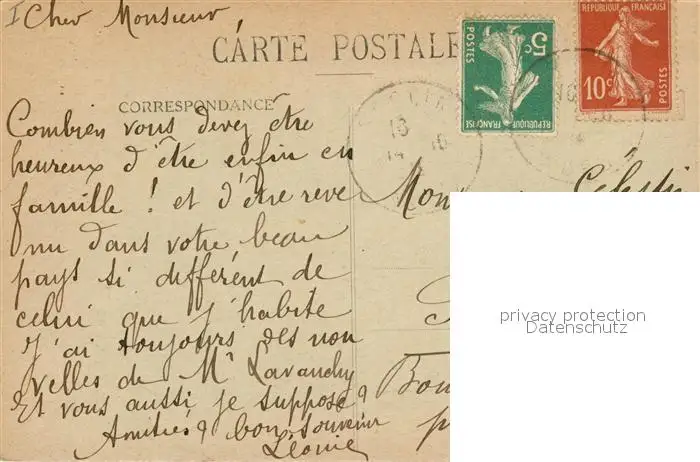 I Cher Monsieur
CARTE POSTALE
CORRESPONDANCE
Combien vous devez être
heureux d'être enfin en
famille ! et d'être reve
nu dans votre beau
pays si différent de
celui que j'habite
J'ai toujours des nou
velles de Mr Lavanchy
Et vous aussi je suppose ?
Amitiés & bon souvenir
Léonie
5c
POSTES
REPUBLIQUE FRANÇAISE
REPUBLIQUE FRANÇAISE
10c
POSTES
privacy protection
Datenschutz